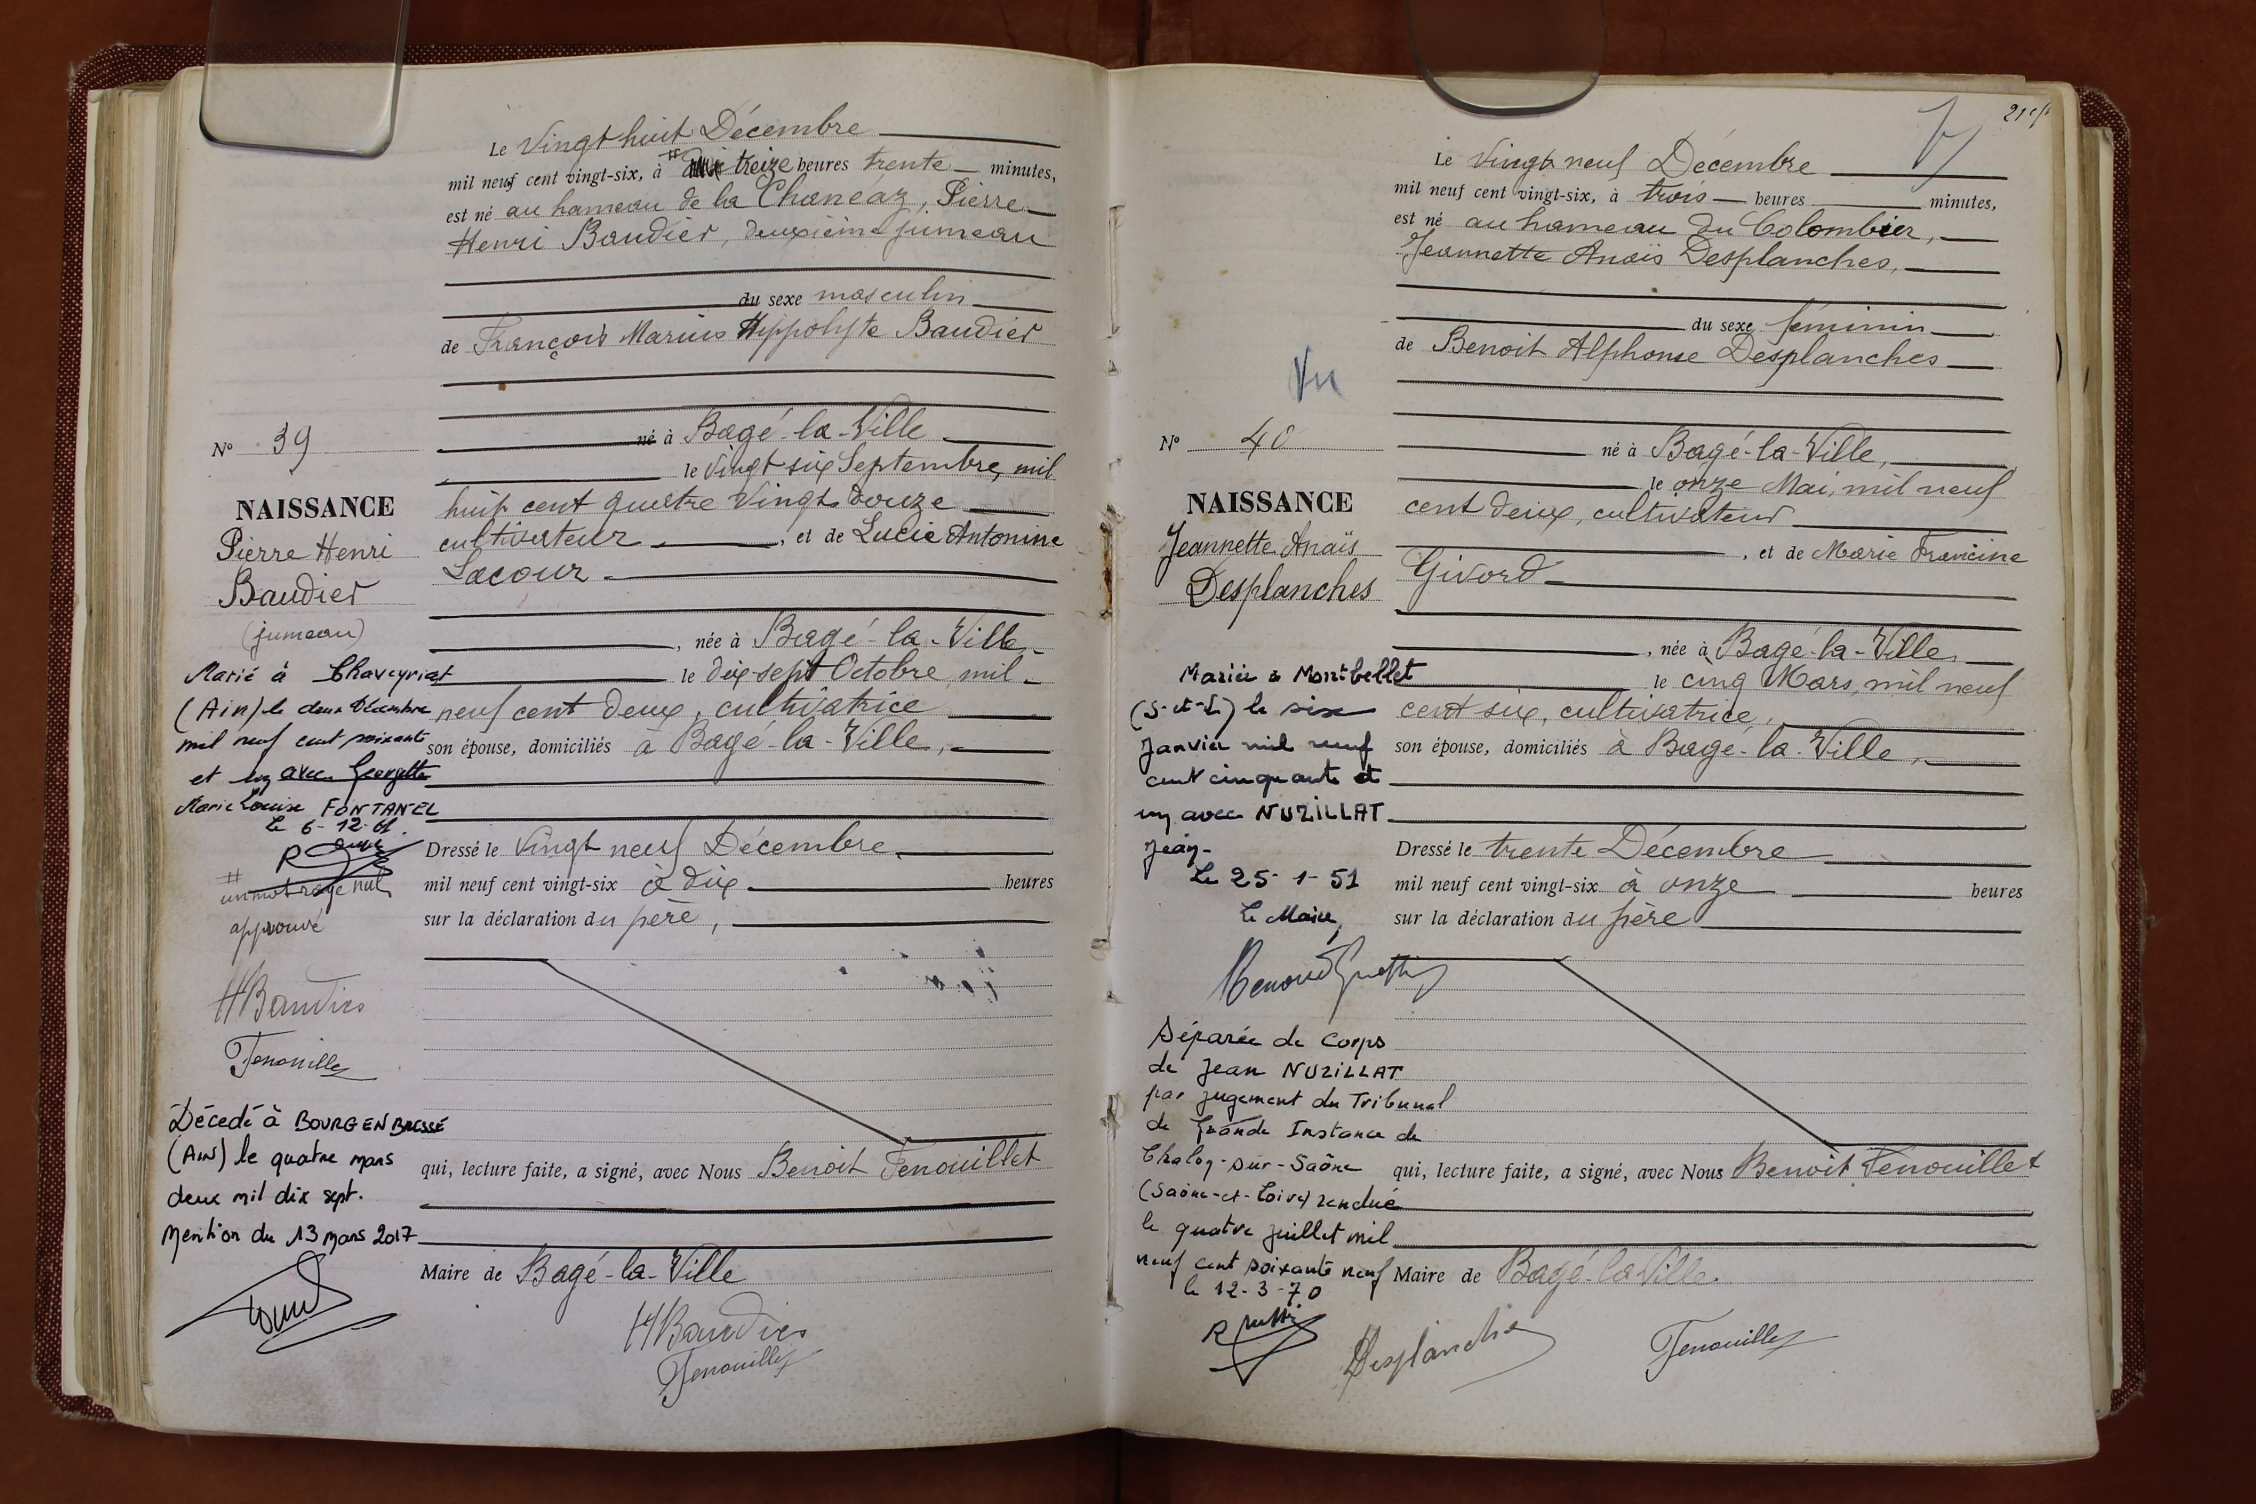 Le Vingt huit Décembre
mil neuf cent vingt-six, à treize heures trente minutes,
est né au hameau de la Chaneaz, Pierre
Henri Baudier, deuxième jumeau
du sexe masculin
de François Marius Hippolyte Baudier
né à Bagé-la-Ville
le vingt six Septembre, mil
huit cent quatre vingt douze
cultivateur, et de Lucie Antonine
Lacour
, née à Bagé-la-Ville
le dix-sept Octobre mil
neuf cent deux, cultivatrice
son épouse, domiciliés à Bagé-la-Ville,
Dressé le vingt neuf Décembre
mil neuf cent vingt-six à dix heures
sur la déclaration du père,
qui, lecture faite, a signé, avec Nous Benoit Fenouillet
Maire de Bagé-la-Ville
HBaudier
Fenouillet
No 39
NAISSANCE
Pierre Henri
Baudier
(jumeau)
Marié à Chaveyriat
(Ain) le deux Décembre
mil neuf cent soixante
et un avec Georgette
Marie Louise FONTANEL
Le 6-12-61.
un mot rayé nul
approuvé
HBaudier
Fenouillet
Décédé à BOURG EN BRESSE
(Ain) le quatre mars
deux mil dix sept.
Mention du 13 mars 2017
Le Vingt neuf Décembre
mil neuf cent vingt-six, à trois heures minutes,
est né au hameau du Colombier,
Jeannette Anaïs Desplanches,
du sexe féminin
de Benoit Alphonse Desplanches
né à Bagé-la-Ville,
le onze Mai, mil neuf
cent deux, cultivateur
, et de Marie Francine
Givord
, née à Bagé-la-Ville,
le cinq Mars, mil neuf
cent six, cultivatrice,
son épouse, domiciliés à Bagé-la-Ville,
Dressé le trente Décembre
mil neuf cent vingt-six à onze heures
sur la déclaration du père
qui, lecture faite, a signé, avec Nous Benoit Fenouillet
Maire de Bagé-la-Ville
Desplanches
Fenouillet
Vu
No 40
NAISSANCE
Jeannette Anaïs
Desplanches
Mariée à Montbellet
(S-et-L) le six
Janvier mil neuf
cent cinquante et
un avec NUZILLAT
Jean-
Le 25-1-51
Le Maire,
Séparée de Corps
de Jean NUZILLAT
par jugement du Tribunal
de Grande Instance de
Chalon-sur-Saône
(Saône-et-Loire) rendue
le quatre juillet mil
neuf cent soixante neuf
le 12-3-70